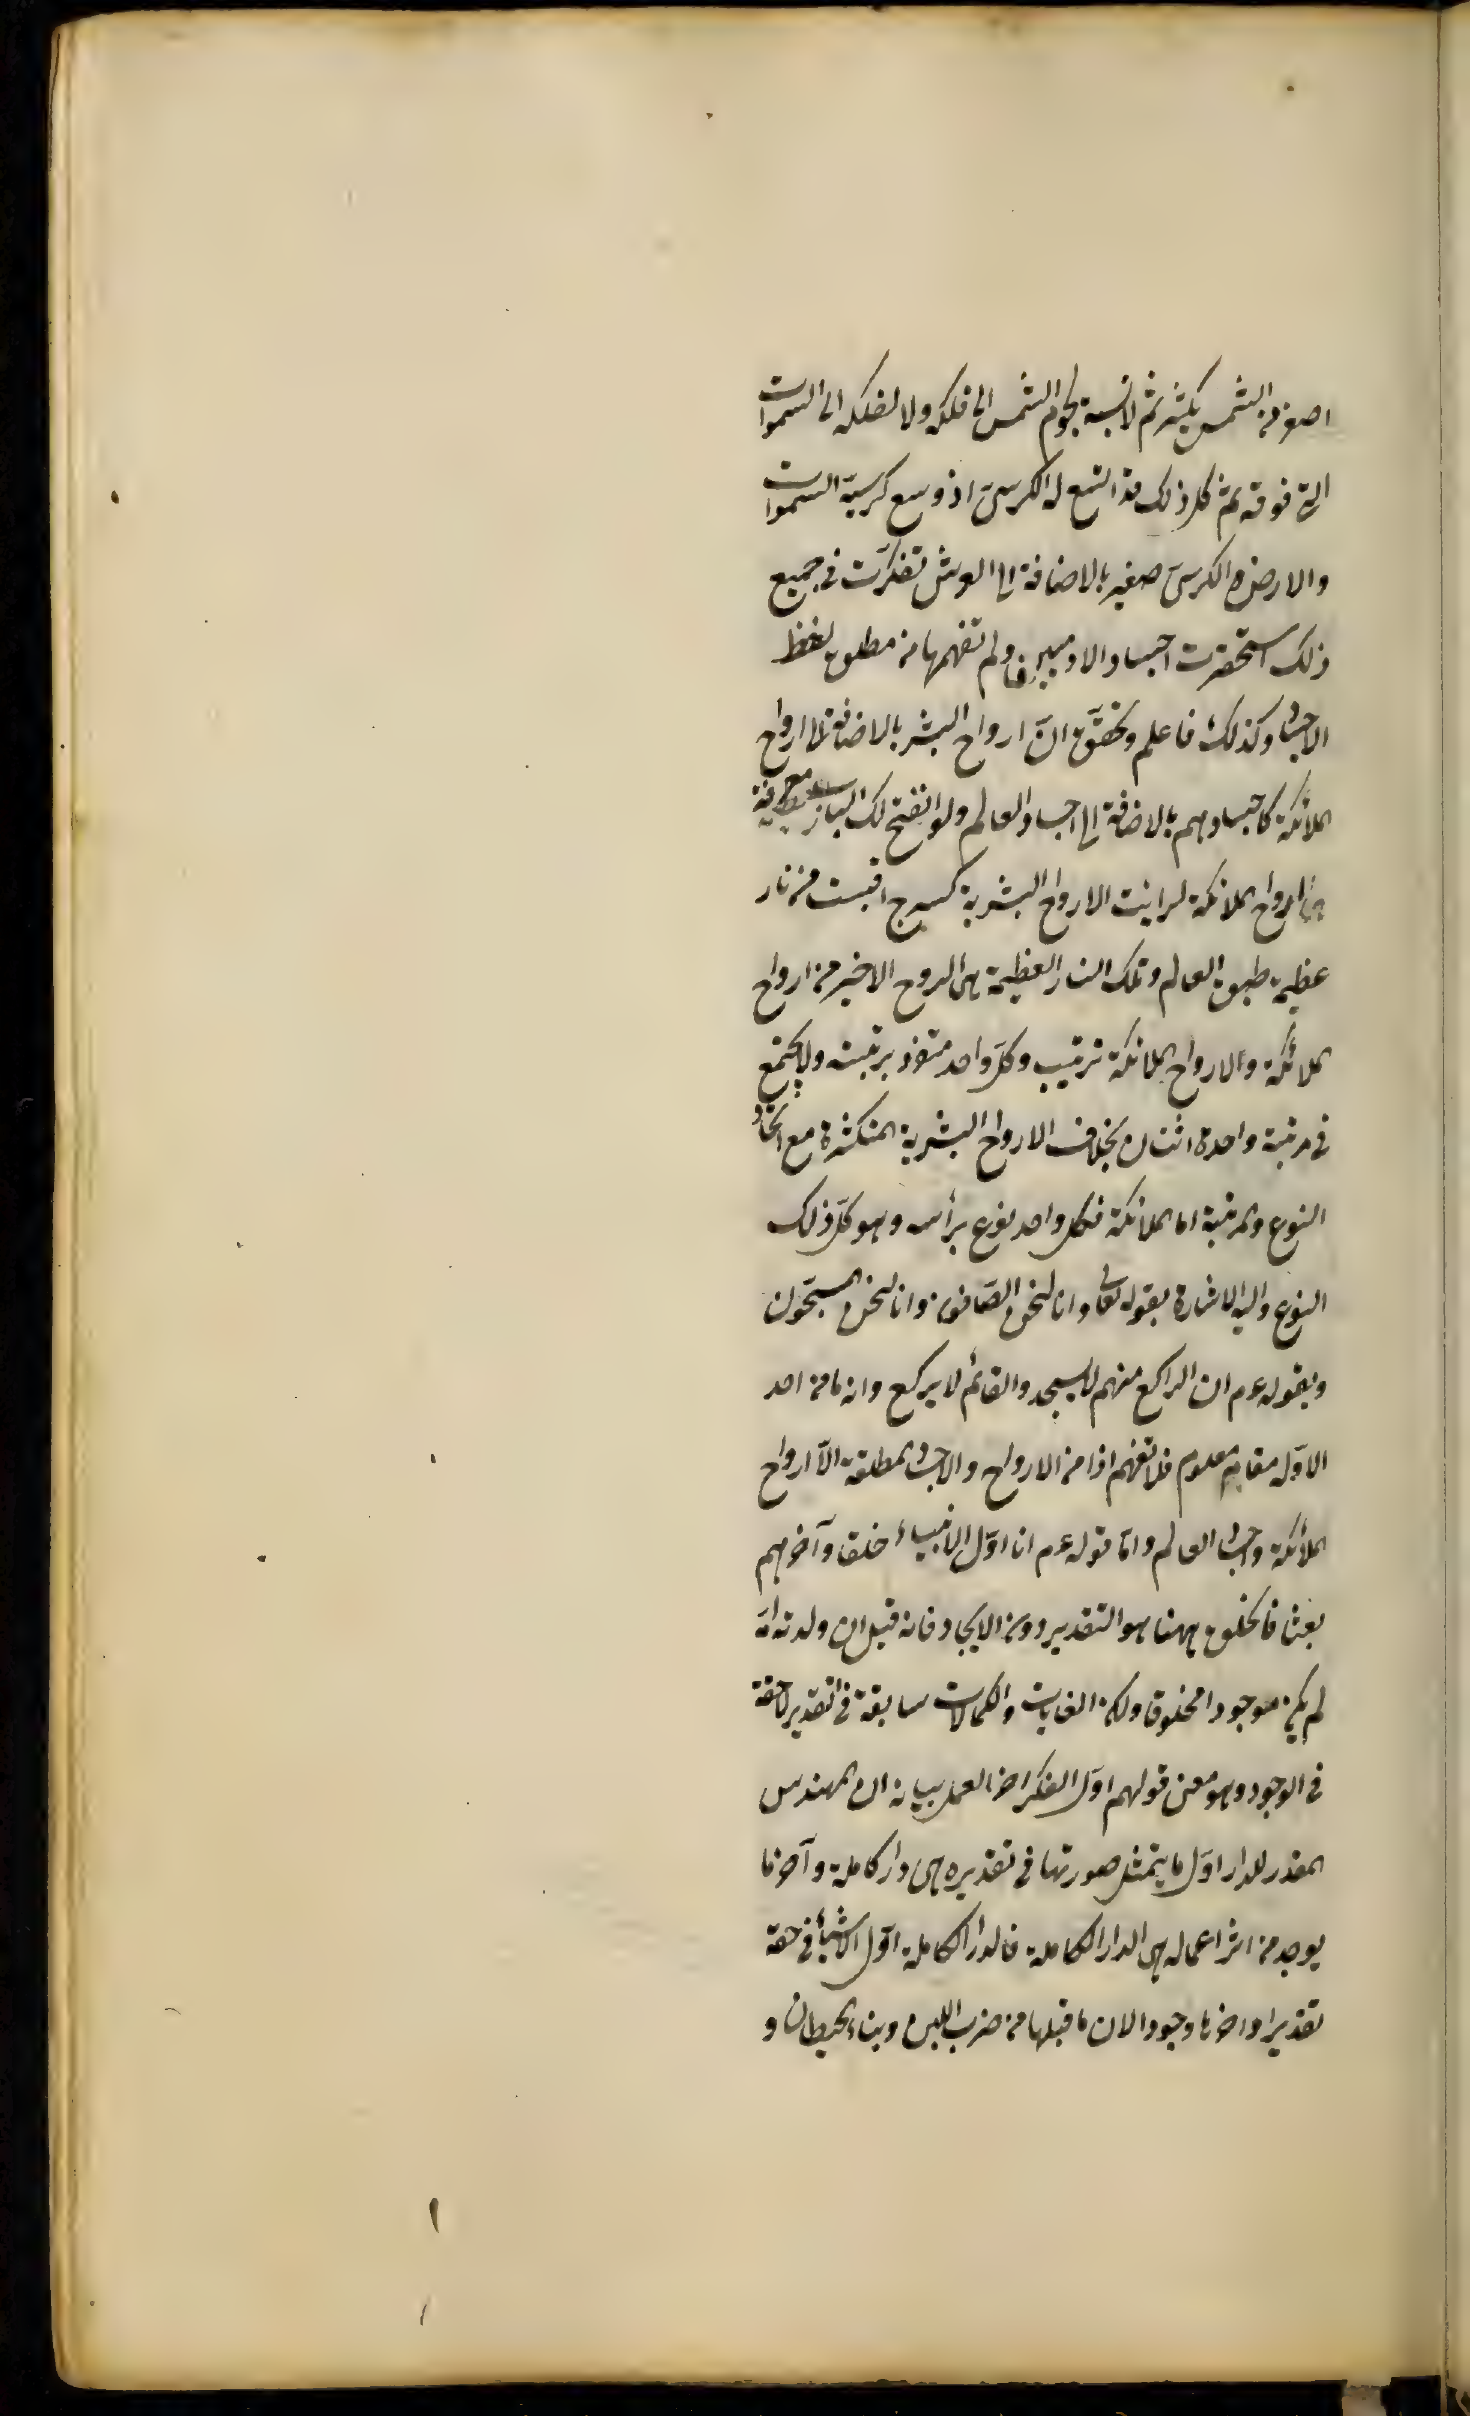 اصغر من الشمس بكثير ثم لا نسبة لجرم الشمس الى فلكه ولا لفلكه الى السموات
التى فوقه ثم كل ذلك مما اتسع له الكرسى اذ وسع كرسيه السموات
والارض والكرسى صغير بالاضافة الى العرش تفكرت فى جميع
ذلك استحقرت اجساد الادميين ولم تفهمها من مطلق لفظ
الاجساد وكذلك فاعلم وتحقق ان ارواح البشر بالاضافة الى ارواح
الملائكة كاجسادهم بالاضافة الى اجساد العالم ولو انفتح لك الباب معرفة
ارواح الملائكة لرايت الارواح البشرية كسرج اقتبست من نار
عظيمة طبق العالم وتلك النار العظيمة هى الروح الاخير من ارواح
الملائكة والارواح الملائكة ترتيب وكل واحد منفرد برتبته ولا يجتمع
فى مرتبة واحدة اثنان بخلاف الارواح البشرية المتكثرة مع اتحاد
النوع والمرتبة اما الملائكة فكل واحد نوع برأسه وهو كل ذلك
النوع واليه الاشارة بقوله تعالى وانا لنحن الصافون وانا لنحن المسبحون
وبقوله عم ان الراكع منهم لا يسجد والقائم لا يركع وانه ما من احد
الا وله مقام معلوم فلا تفهم اذا من الارواح والاجساد المطلقة الا ارواح
الملائكة واجساد العالم واما قوله عم انا اول الانبياء خلقا وآخرهم
بعثا فالخلق ههنا هو التقدير دون الايجاد فانه قبل ان ولدته امه
لم يكن موجودا مخلوقا ولكن الغايات والكمالات سابقة فى التقدير لاحقة
فى الوجود وهو معنى قولهم اول الفكر اخر العمل بيانه ان المهندس
المقدر للدار اول ما يتمثل صورتها فى تقديره هى دار كاملة وآخر ما
يوجد من اثر اعماله هى الدار الكاملة فالدار الكاملة اول الاشياء فى حقه
تقديرا واخرها وجودا لان ما قبلها من ضرب اللبن وبناء الحيطان و